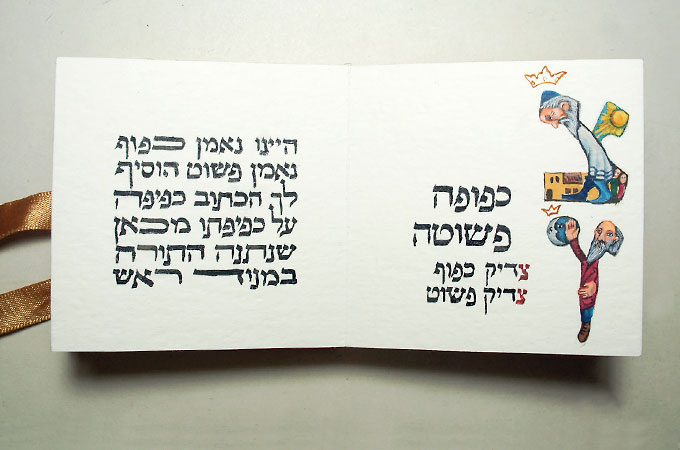 כפופה
פשוטה
צדיק כפוף
צדיק פשוט
היינו נאמן כפוף
נאמן פשוט הוסיף
לך הכתוב כפיפה
על כפיפתו מכאן
שנתנה התורה
במנוד ראש